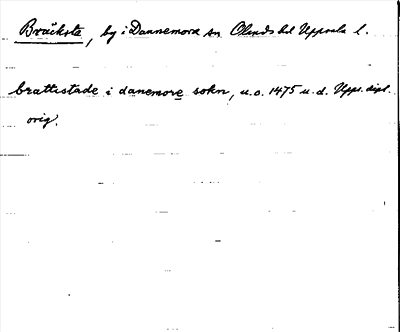 Bräcksta, by i Dannemora sn Olands hd Uppsala l.
brattistade i danemore sokn, u.o. 1475 u.d. Upps. dipl.
orig.